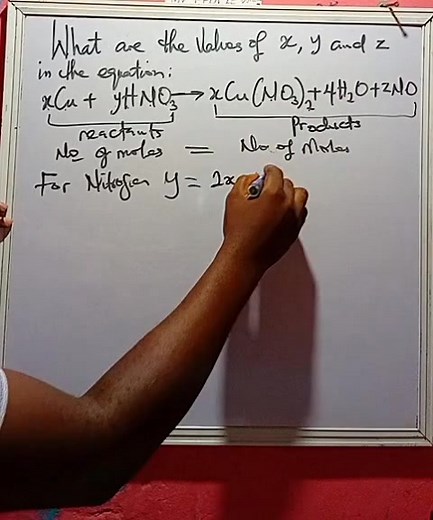 What are the Values of x, y and z
in the equation:
xCu + yHNO3 → xCu(NO3)2 + 4H2O + zNO
reactants
Products
No of moles = No. of Moles
For Nitrogen y = 2x